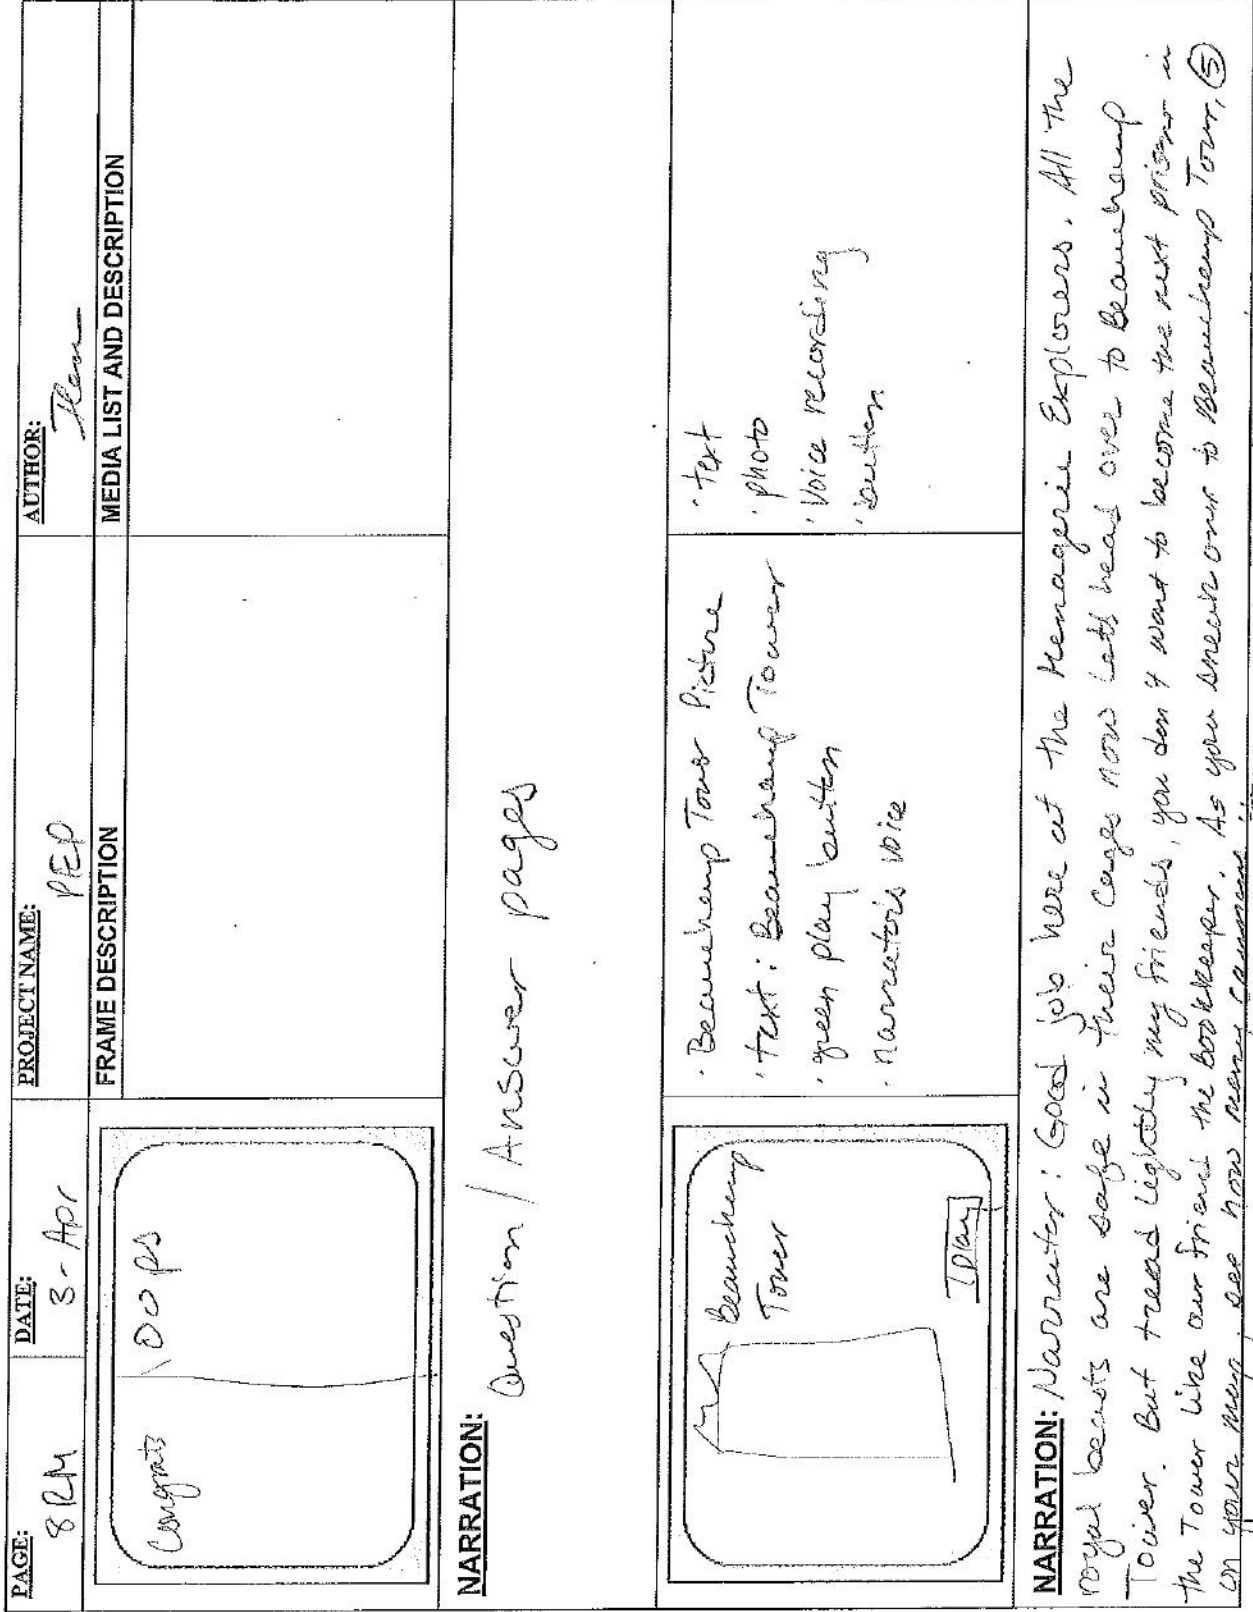 PAGE: 8RM
DATE: 3-Apr
PROJECT NAME: PEP
AUTHOR:
FRAME DESCRIPTION
MEDIA LIST AND DESCRIPTION
Congrats
oops
NARRATION: Question / Answer pages
Beauchamp
Tower
Play
· Beauchamp Tower Picture
· text: Beauchamp Tower
· green play button
· narrator's voice
· text
· photo
· voice recording
· button
NARRATION: Narrator: Good job here at the Menagerie Explorers. All the
royal beasts are safe in their cages now Let's head over to Beauchamp
Tower. But tread lightly my friends, you don't want to become the next prisoner in
the Tower like our friend the bookkeeper. As you sneak over to Beauchamp Tower, (5)
on your map, see how many cannons